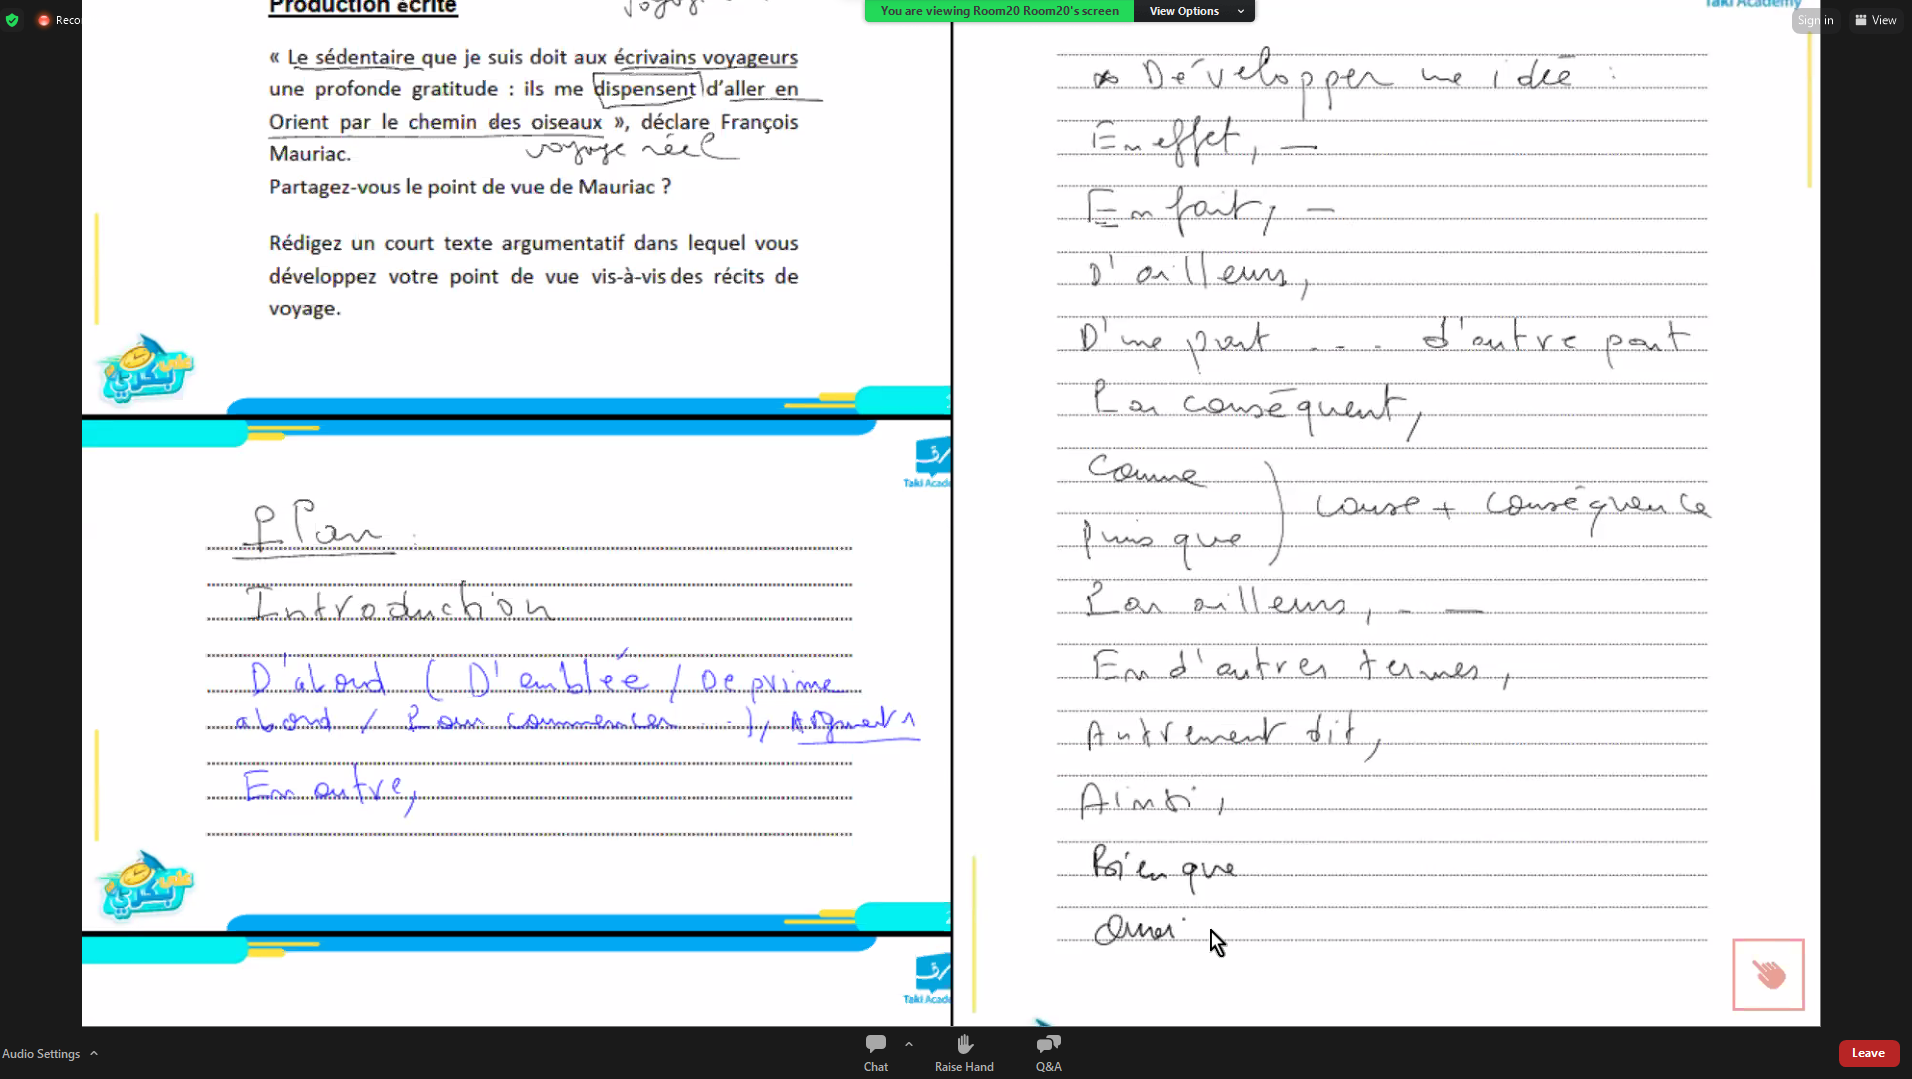 You are viewing Room20 Room20's screen
View Options
Reco
Sign in
View
Production écrite
« Le sédentaire que je suis doit aux écrivains voyageurs
une profonde gratitude : ils me dispensent d'aller en
Orient par le chemin des oiseaux », déclare François
Mauriac.
voyage réel
Partagez-vous le point de vue de Mauriac ?
Rédigez un court texte argumentatif dans lequel vous
développez votre point de vue vis-à-vis des récits de
voyage.
على بكري
Taki Acade
Plan :
Introduction
D'abord ( D'emblée / De prime
abord / Pour commencer ...), Argument 1
En outre,
على بكري
Taki Acade
Taki Academy
* Développer une idée :
En effet, —
En fait, —
D'ailleurs,
D'une part .... d'autre part
Par conséquent,
Comme
Puisque
cause + conséquence
Par ailleurs, - —
En d'autres termes,
Autrement dit,
Ainsi,
Bien que
Quoi
Audio Settings
Chat
Raise Hand
Q&A
Leave